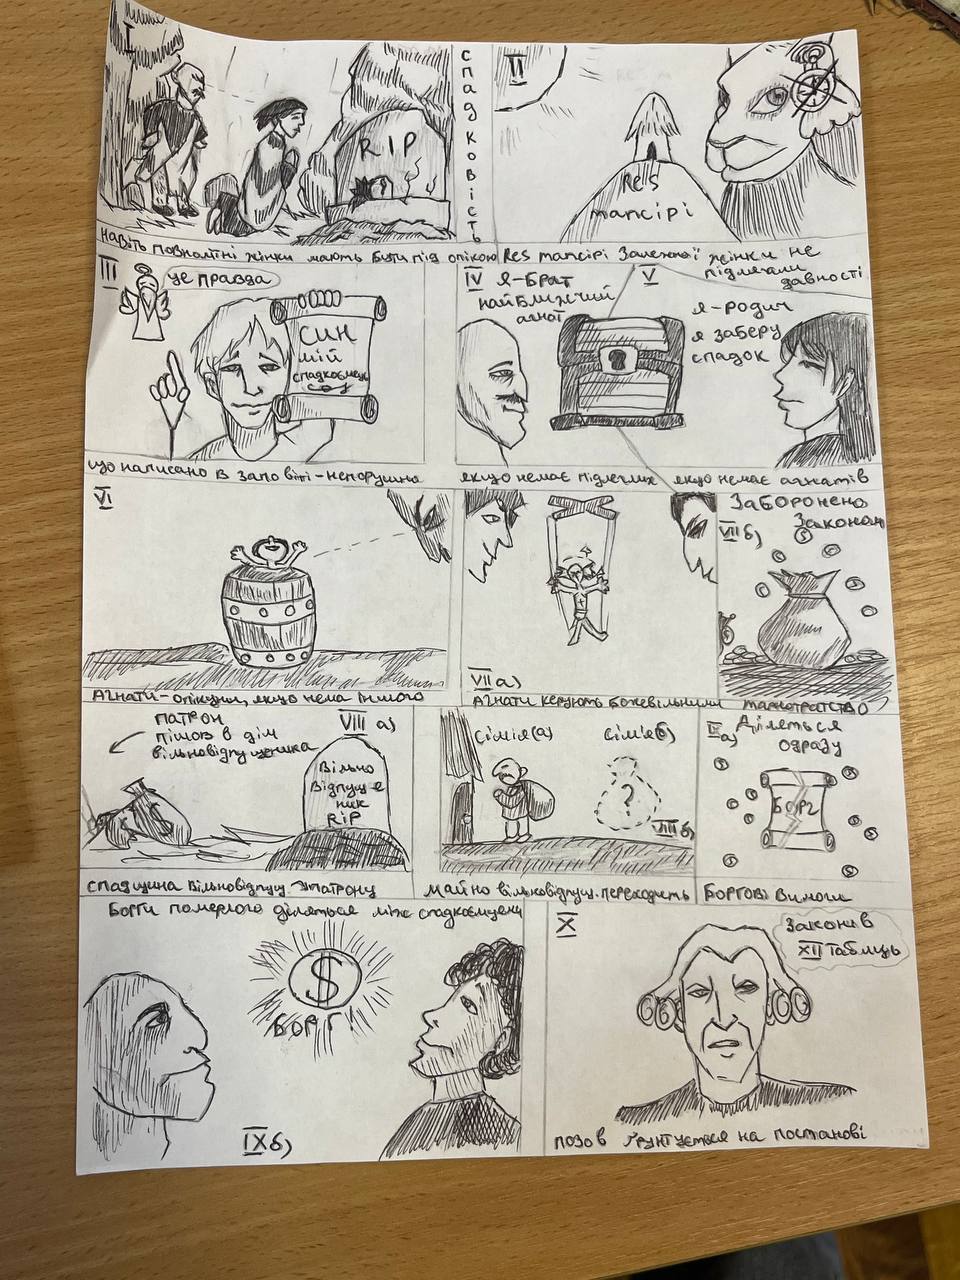 I
RIP
навіть повнолітні жінки мають бути під опікою
СПАДКОВІСТЬ
II
Res
mancipi
Res mancipi залежної жінки не
підлягали
давності
III
це правда
СИН
мій
спадкоємець
що написано в заповіті - непорушно
IV
Я-Брат
найближчий
агнат
якщо немає підлеглих
V
я-родич
я заберу
спадок
якщо немає агнатів
VI
Агнати - опікуни, якщо нема іншого
VII а)
Агнати керують божевільними
Заборонено
Законом
VII б)
марнотратство
патрон
пішов в дім
вільновідпущеника
VIII а)
Вільно
Відпуще
ник
RIP
спадщина вільновідпущ. патрону
Сімія(а)
Сім'я(б)
?
VIII б)
майно вільновідпущ. переходить
IX а)
Діляться
одразу
БОРГ
Боргові вимоги
Борги померлого діляться між спадкоємцями
$
БОРГ
IX б)
X
Законів
XII Таблиць
позов ґрунтується на постанові